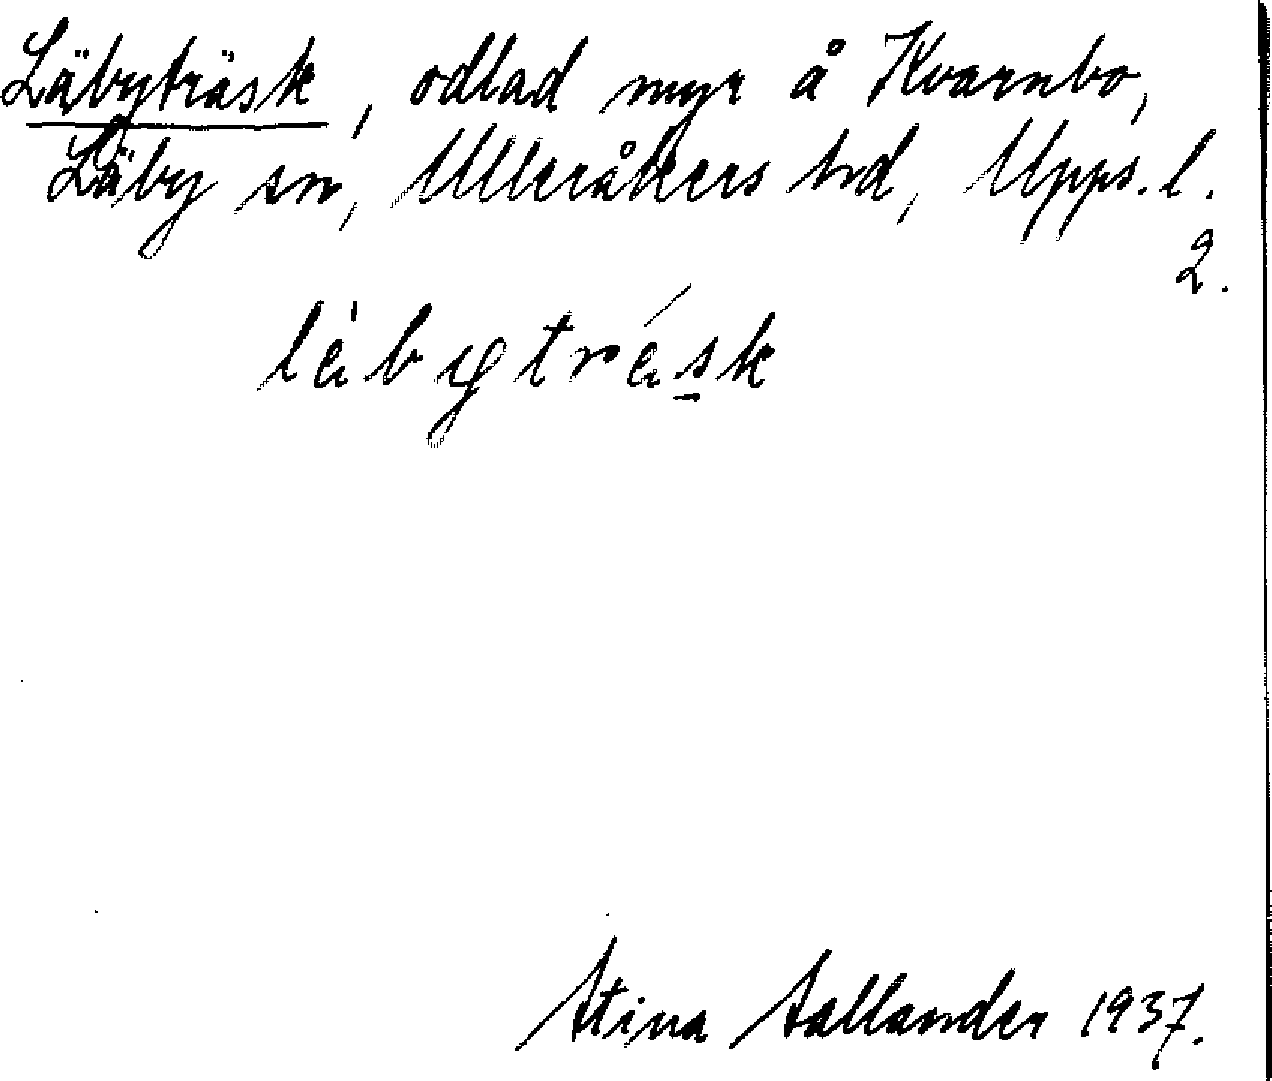 Läbyträsk, odlad myr å Kvarnbo,
Läby sn, Ulleråkers hd, Upps. l.
2.
Stina Sallander 1937.